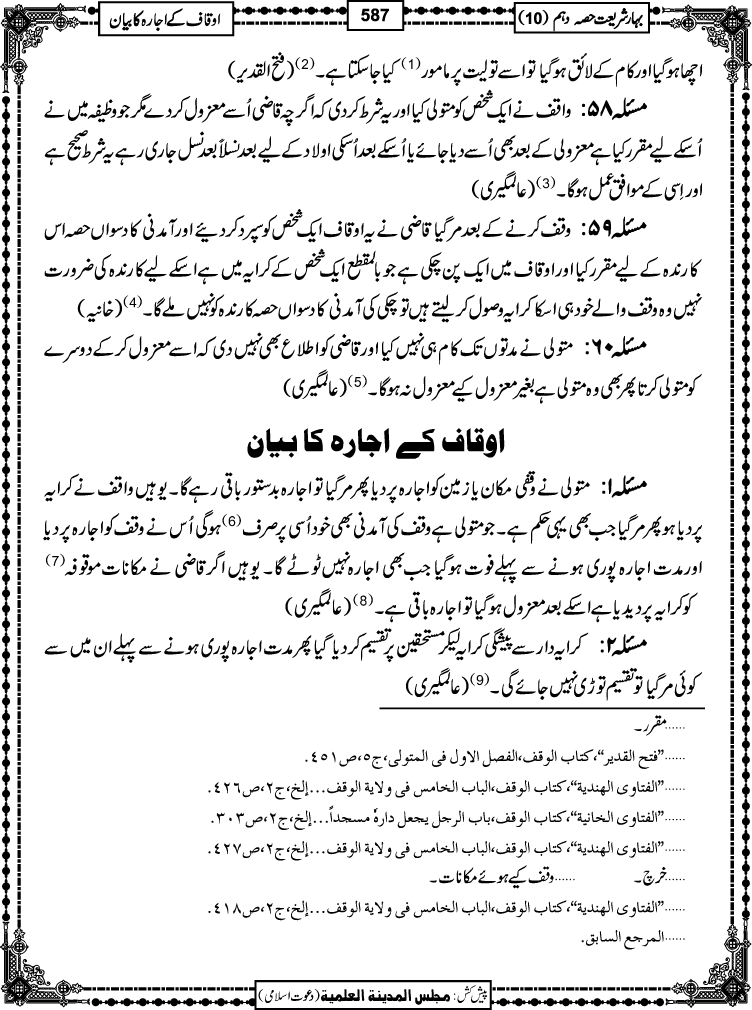 بہارِ شریعت حصہ دہم (10)
587
اوقاف کے اجارہ کا بیان
اچھا ہو گیا اور کام کے لائق ہو گیا تو اسے تولیت پر مامور (1) کیا جا سکتا ہے۔ (2) (فتح القدیر)
مسئلہ ۵۸: واقف نے ایک شخص کو متولی کیا اور یہ شرط کر دی کہ اگرچہ قاضی اُسے معزول کر دے مگر جو وظیفہ میں نے
اُسکے لیے مقرر کیا ہے معزولی کے بعد بھی اُسے دیا جائے یا اُسکے بعد اُسکی اولاد کے لیے بعد نسلاً بعد نسل جاری رہے یہ شرط صحیح ہے
اور اِسی کے موافق عمل ہوگا۔ (3) (عالمگیری)
مسئلہ ۵۹: وقف کرنے کے بعد مر گیا قاضی نے یہ اوقاف ایک شخص کو سپرد کر دیئے اور آمدنی کا دسواں حصہ اس
کارندہ کے لیے مقرر کیا اور اوقاف میں ایک پن چکی ہے جو بالمقطع ایک شخص کے کرایہ میں ہے اسکے لیے کارندہ کی ضرورت
نہیں وہ وقف والے خود ہی اسکا کرایہ وصول کر لیتے ہیں تو چکی کی آمدنی کا دسواں حصہ کارندہ کو نہیں ملے گا۔ (4) (خانیہ)
مسئلہ ۶۰: متولی نے مدتوں تک کام ہی نہیں کیا اور قاضی کو اطلاع بھی نہیں دی کہ اسے معزول کر کے دوسرے
کو متولی کرتا پھر بھی وہ متولی ہے بغیر معزول کیے معزول نہ ہوگا۔ (5) (عالمگیری)
اوقاف کے اجارہ کا بیان
مسئلہ ۱: متولی نے وقفی مکان یا زمین کو اجارہ پر دیا پھر مر گیا تو اجارہ بدستور باقی رہے گا۔ یو ہیں واقف نے کرایہ
پر دیا ہو پھر مر گیا جب بھی یہی حکم ہے۔ جو متولی ہے وقف کی آمدنی بھی خود اُسی پر صرف (6) ہوگی اُس نے وقف کو اجارہ پر دیا
اور مدت اجارہ پوری ہونے سے پہلے فوت ہو گیا جب بھی اجارہ نہیں ٹوٹے گا۔ یو ہیں اگر قاضی نے مکانات موقوفہ (7)
کو کرایہ پر دیدیا ہے اسکے بعد معزول ہو گیا تو اجارہ باقی ہے۔ (8) (عالمگیری)
مسئلہ ۲: کرایہ دار سے پیشگی کرایہ لیکر مستحقین پر تقسیم کر دیا گیا پھر مدت اجارہ پوری ہونے سے پہلے ان میں سے
کوئی مر گیا تو تقسیم توڑی نہیں جائے گی۔ (9) (عالمگیری)
......مقرر۔
......”فتح القدیر“،کتاب الوقف،الفصل الاول فی المتولی،ج٥،ص٤٥١.
......”الفتاوی الھندیة“،کتاب الوقف،الباب الخامس فی ولایة الوقف...إلخ،ج٢،ص٤٢٦.
......”الفتاوی الخانیة“،کتاب الوقف،باب الرجل یجعل دارہٗ مسجداً...إلخ،ج٢،ص٣٠٣.
......”الفتاوی الھندیة“،کتاب الوقف،الباب الخامس فی ولایة الوقف...إلخ،ج٢،ص٤٢٧.
......خرچ۔ ......وقف کیے ہوئے مکانات۔
......”الفتاوی الھندیة“،کتاب الوقف،الباب الخامس فی ولایة الوقف...إلخ،ج٢،ص٤١٨.
......المرجع السابق.
پیش کش: مجلس المدینة العلمیة (دعوت اسلامی)